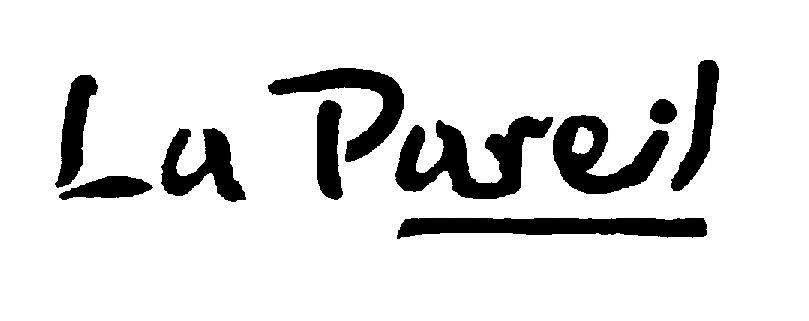 La Pareil